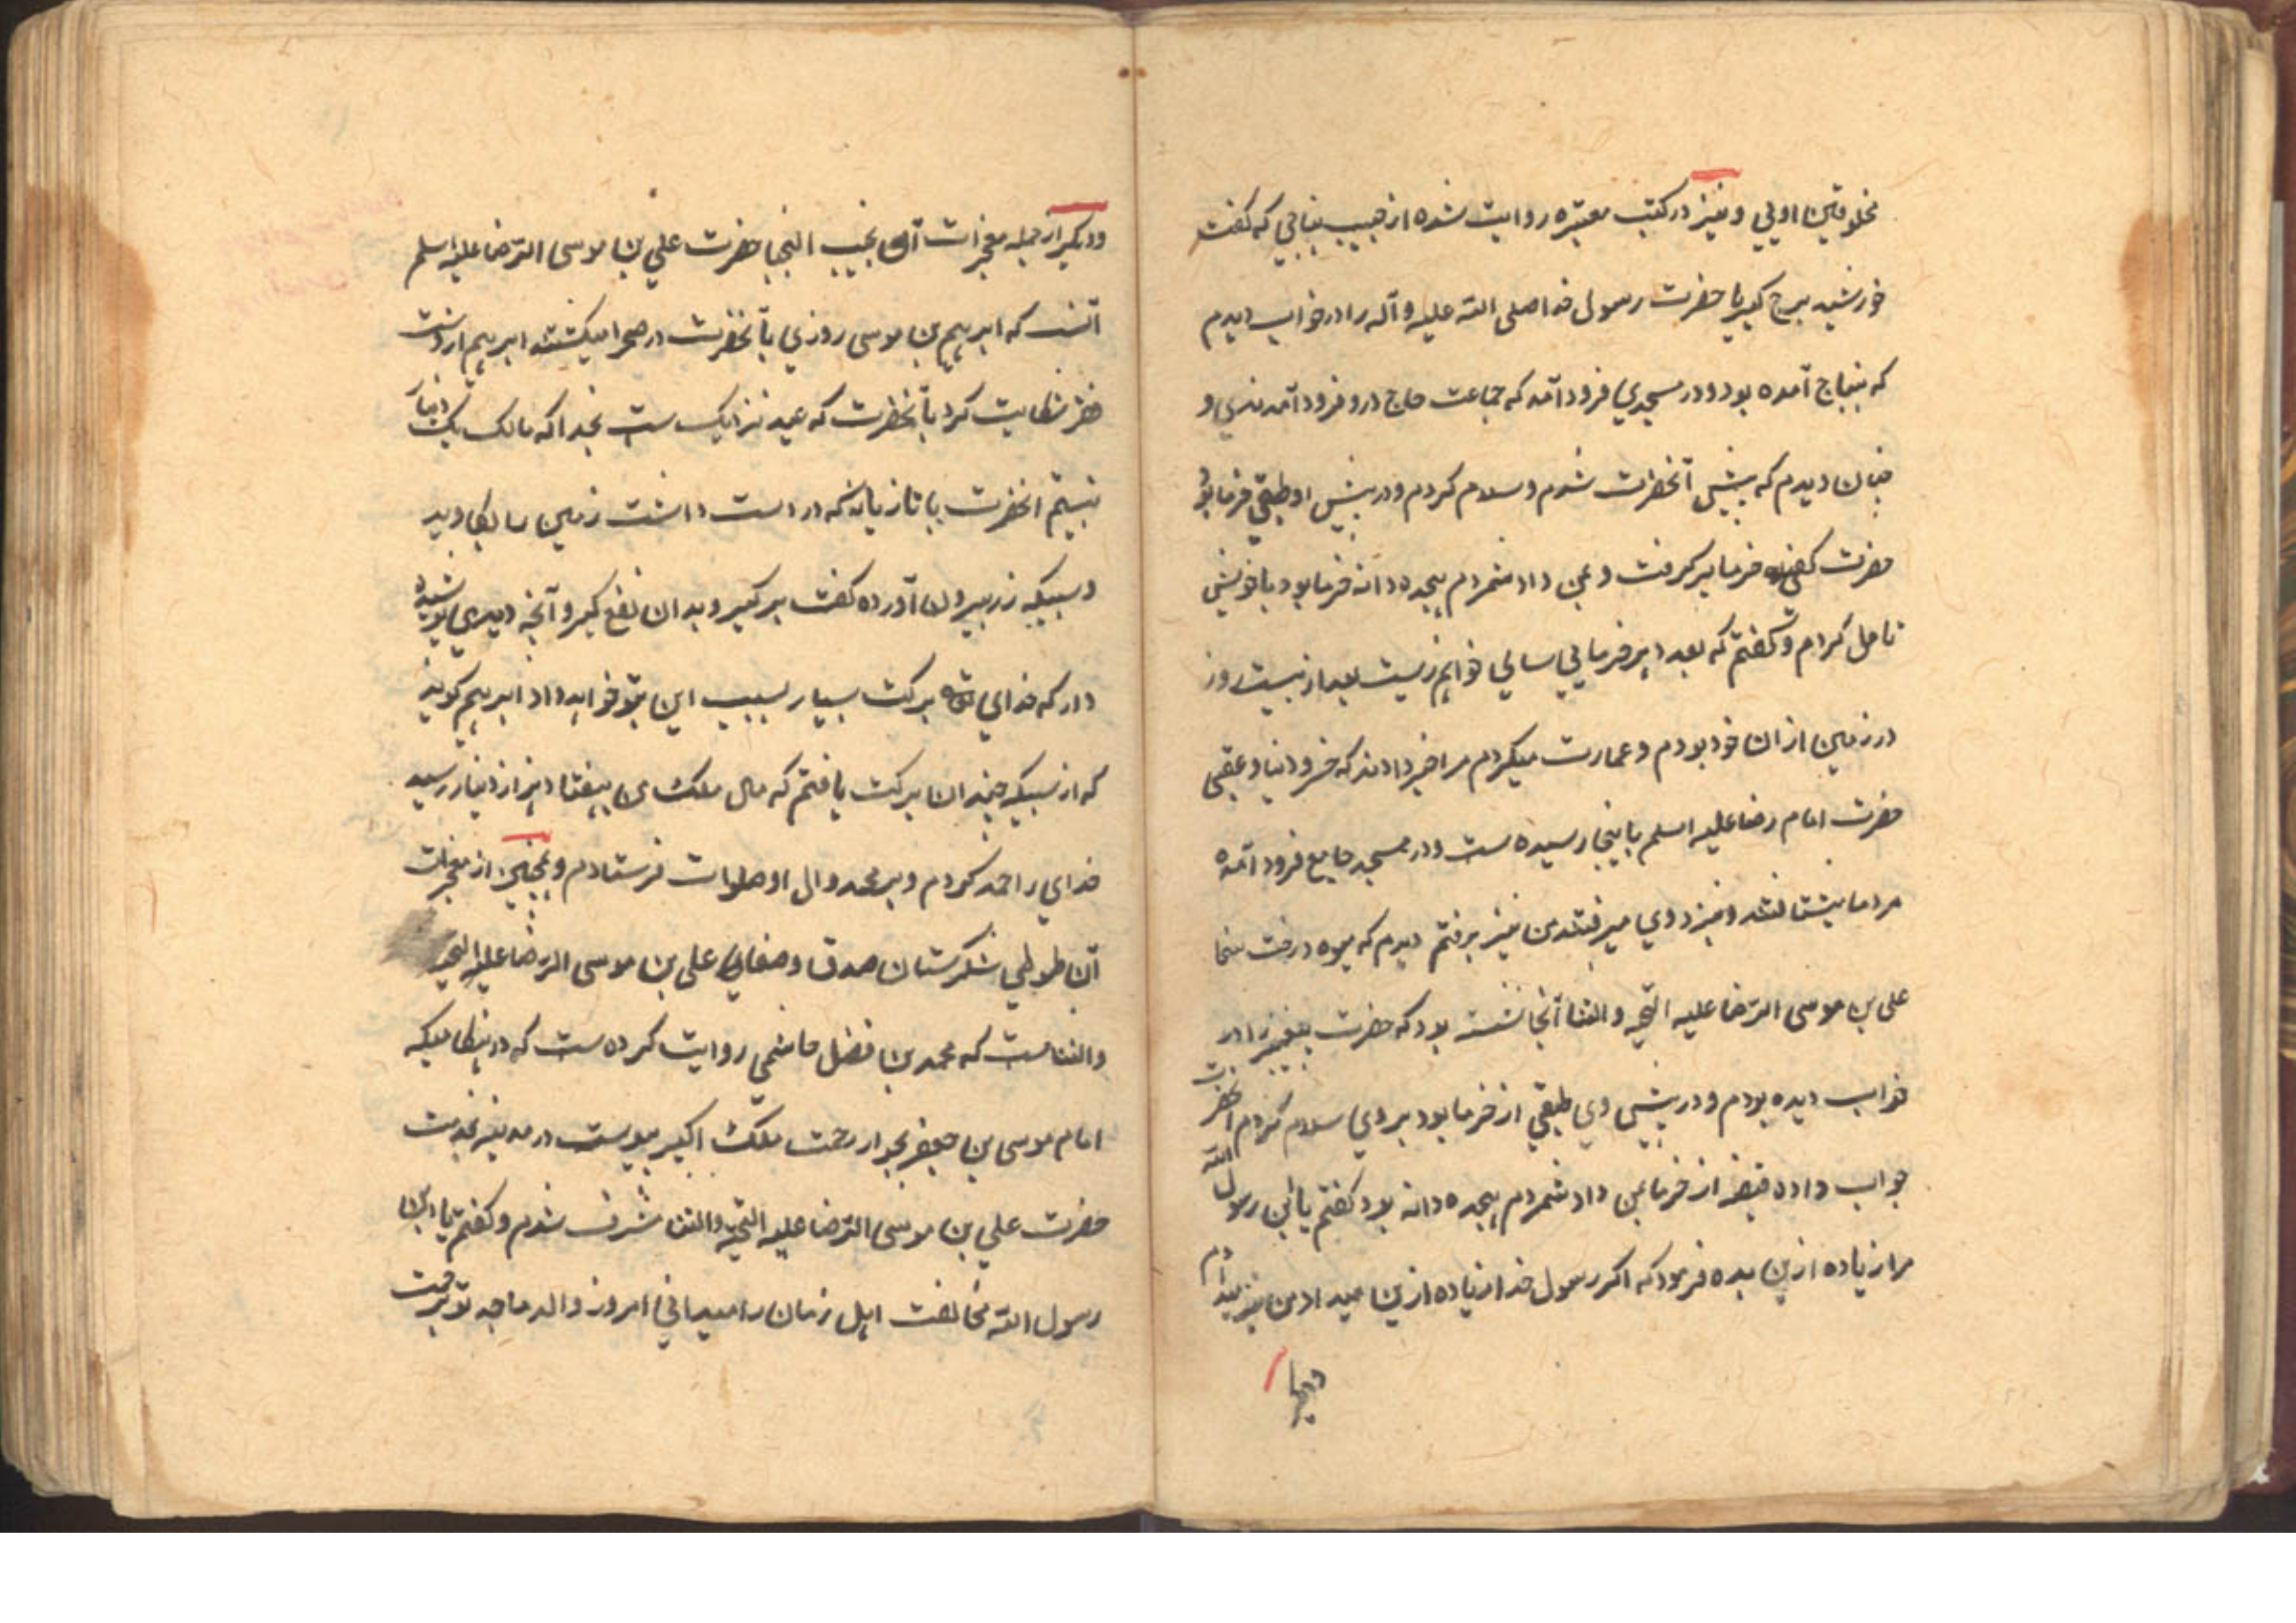 مخلوقین اولی و نیز در کتب معتبره روایت شده از حبیب بناجی که گفت
خورشید برج کبریا حضرت رسول خدا صلی الله علیه و آله را در خواب دیدم
که بنباج آمده بود و در مسجدی فرود آمد که جماعت حاج درو فرود آمدندی و
چنان دیدم که پیش آنحضرت شدم و سلام کردم و در پیش او طبقی خرما بود
حضرت کفی خرما برگرفت و بمن داد شمردم هیجده دانه خرما بود با خویش
تامل کردم و گفتم که بعد هر خرمایی سالی خواهم زیست بعد از بیست روز
در زمین از ان خود بودم و عمارت میکردم مرا خبر دادند که خسرو دنیا و عقبی
حضرت امام رضا علیه اسلم باینجا رسیده ست و در مسجد جامع فرود آمده
مردما میشتافتند و نیزد وی میرفتند من نیز برفتم دیدم که میوه درخت سخا
علی بن موسی الرضا علیه التحیه والثنا آنجا نشسته بود که حضرت پیغمبر را در
خواب دیده بودم و در پیش وی طبقی از خرما بود بروی سلام کردم آنحضرت
جواب داده قبضه از خرما بمن داد شمردم هیجده دانه بود گفتم یا ابن رسول الله
مرا زیاده ازین بده فرمود که اگر رسول خدا زیاده ازین میداد من نیز میدادم
ودیگر
ودیگر از جمله معجزات آن نجیب النجبا حضرت علی بن موسی الرضا علیه اسلم
آنست که ابرهیم بن موسی روزی با آنحضرت در صحرا میگشتند ابرهیم از دست
فقر شکایت کرد با آنحضرت که عید نزدیک ست بخدا که مالک یک دینار
نیستم انحضرت با تازیانه که در دست داشت زمین را بکاوید
و سبیکه زر بیرون آورده گفت برگیر و بدان نفع گیر و آنچه دیدی پوشیده
دار که خدای تو برکت بسیار بسبب این بتو خواهد داد ابرهیم گوید
که از سبیکه چندان برکت یافتم که مال ملک من بهفتاد هزار دینار رسید
خدای را حمد کردم و بر محمد و ال او صلوات فرستادم و همچنین از معجزات
آن طوطی شکرستان صدق و صفا علی بن موسی الرضا علیه التحیه
والثناست که محمد بن فضل هاشمی روایت کرده ست که در هنگامیکه
امام موسی بن جعفر بجوار رحمت ملک اکبر پیوست در مدینه بخدمت
حضرت علی بن موسی الرضا علیه التحیه والثنا مشرف شدم و گفتم یا ابن
رسول الله مخالفت اهل زمان را میدانی امروز والد ماجد تو برحمت